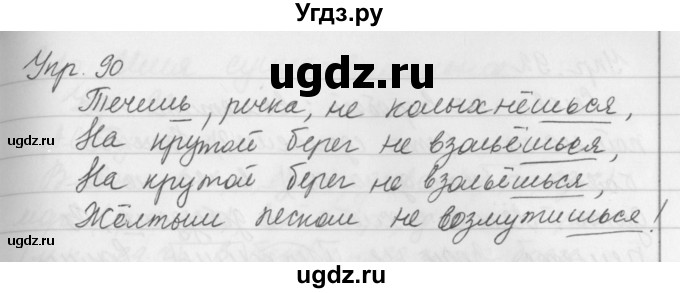 Угдз.ру
Упр. 90
ugdz.ru
Течешь, речка, не колыхнёшься,
На крутой берег не взольёшься,
На крутой берег не взольёшься,
Жёлтым песком не возмутишься!
ugdz.ru
ugdz.ru
ugdz.ru
ugdz.ru
ugdz.ru
ugdz.ru